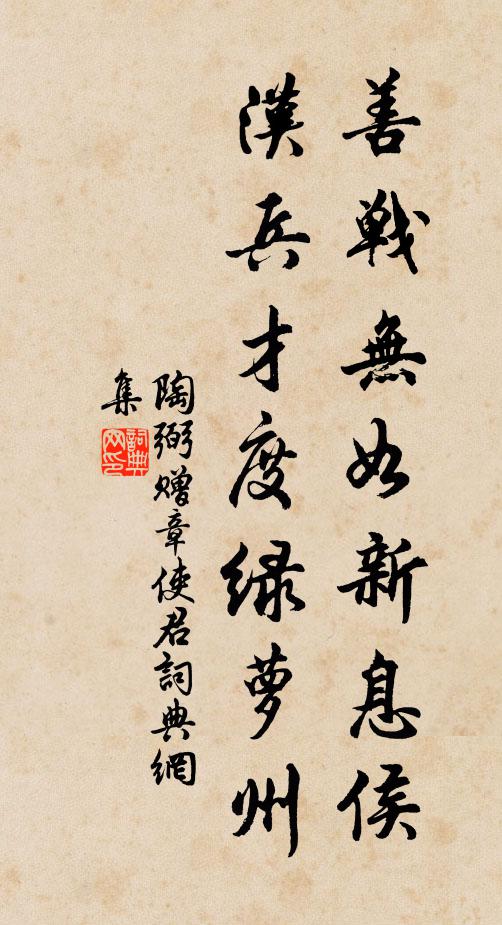 善戰無如新息侯
漢兵才度绿萝州
陶弼贈章使君詞典網
集
詞典网印